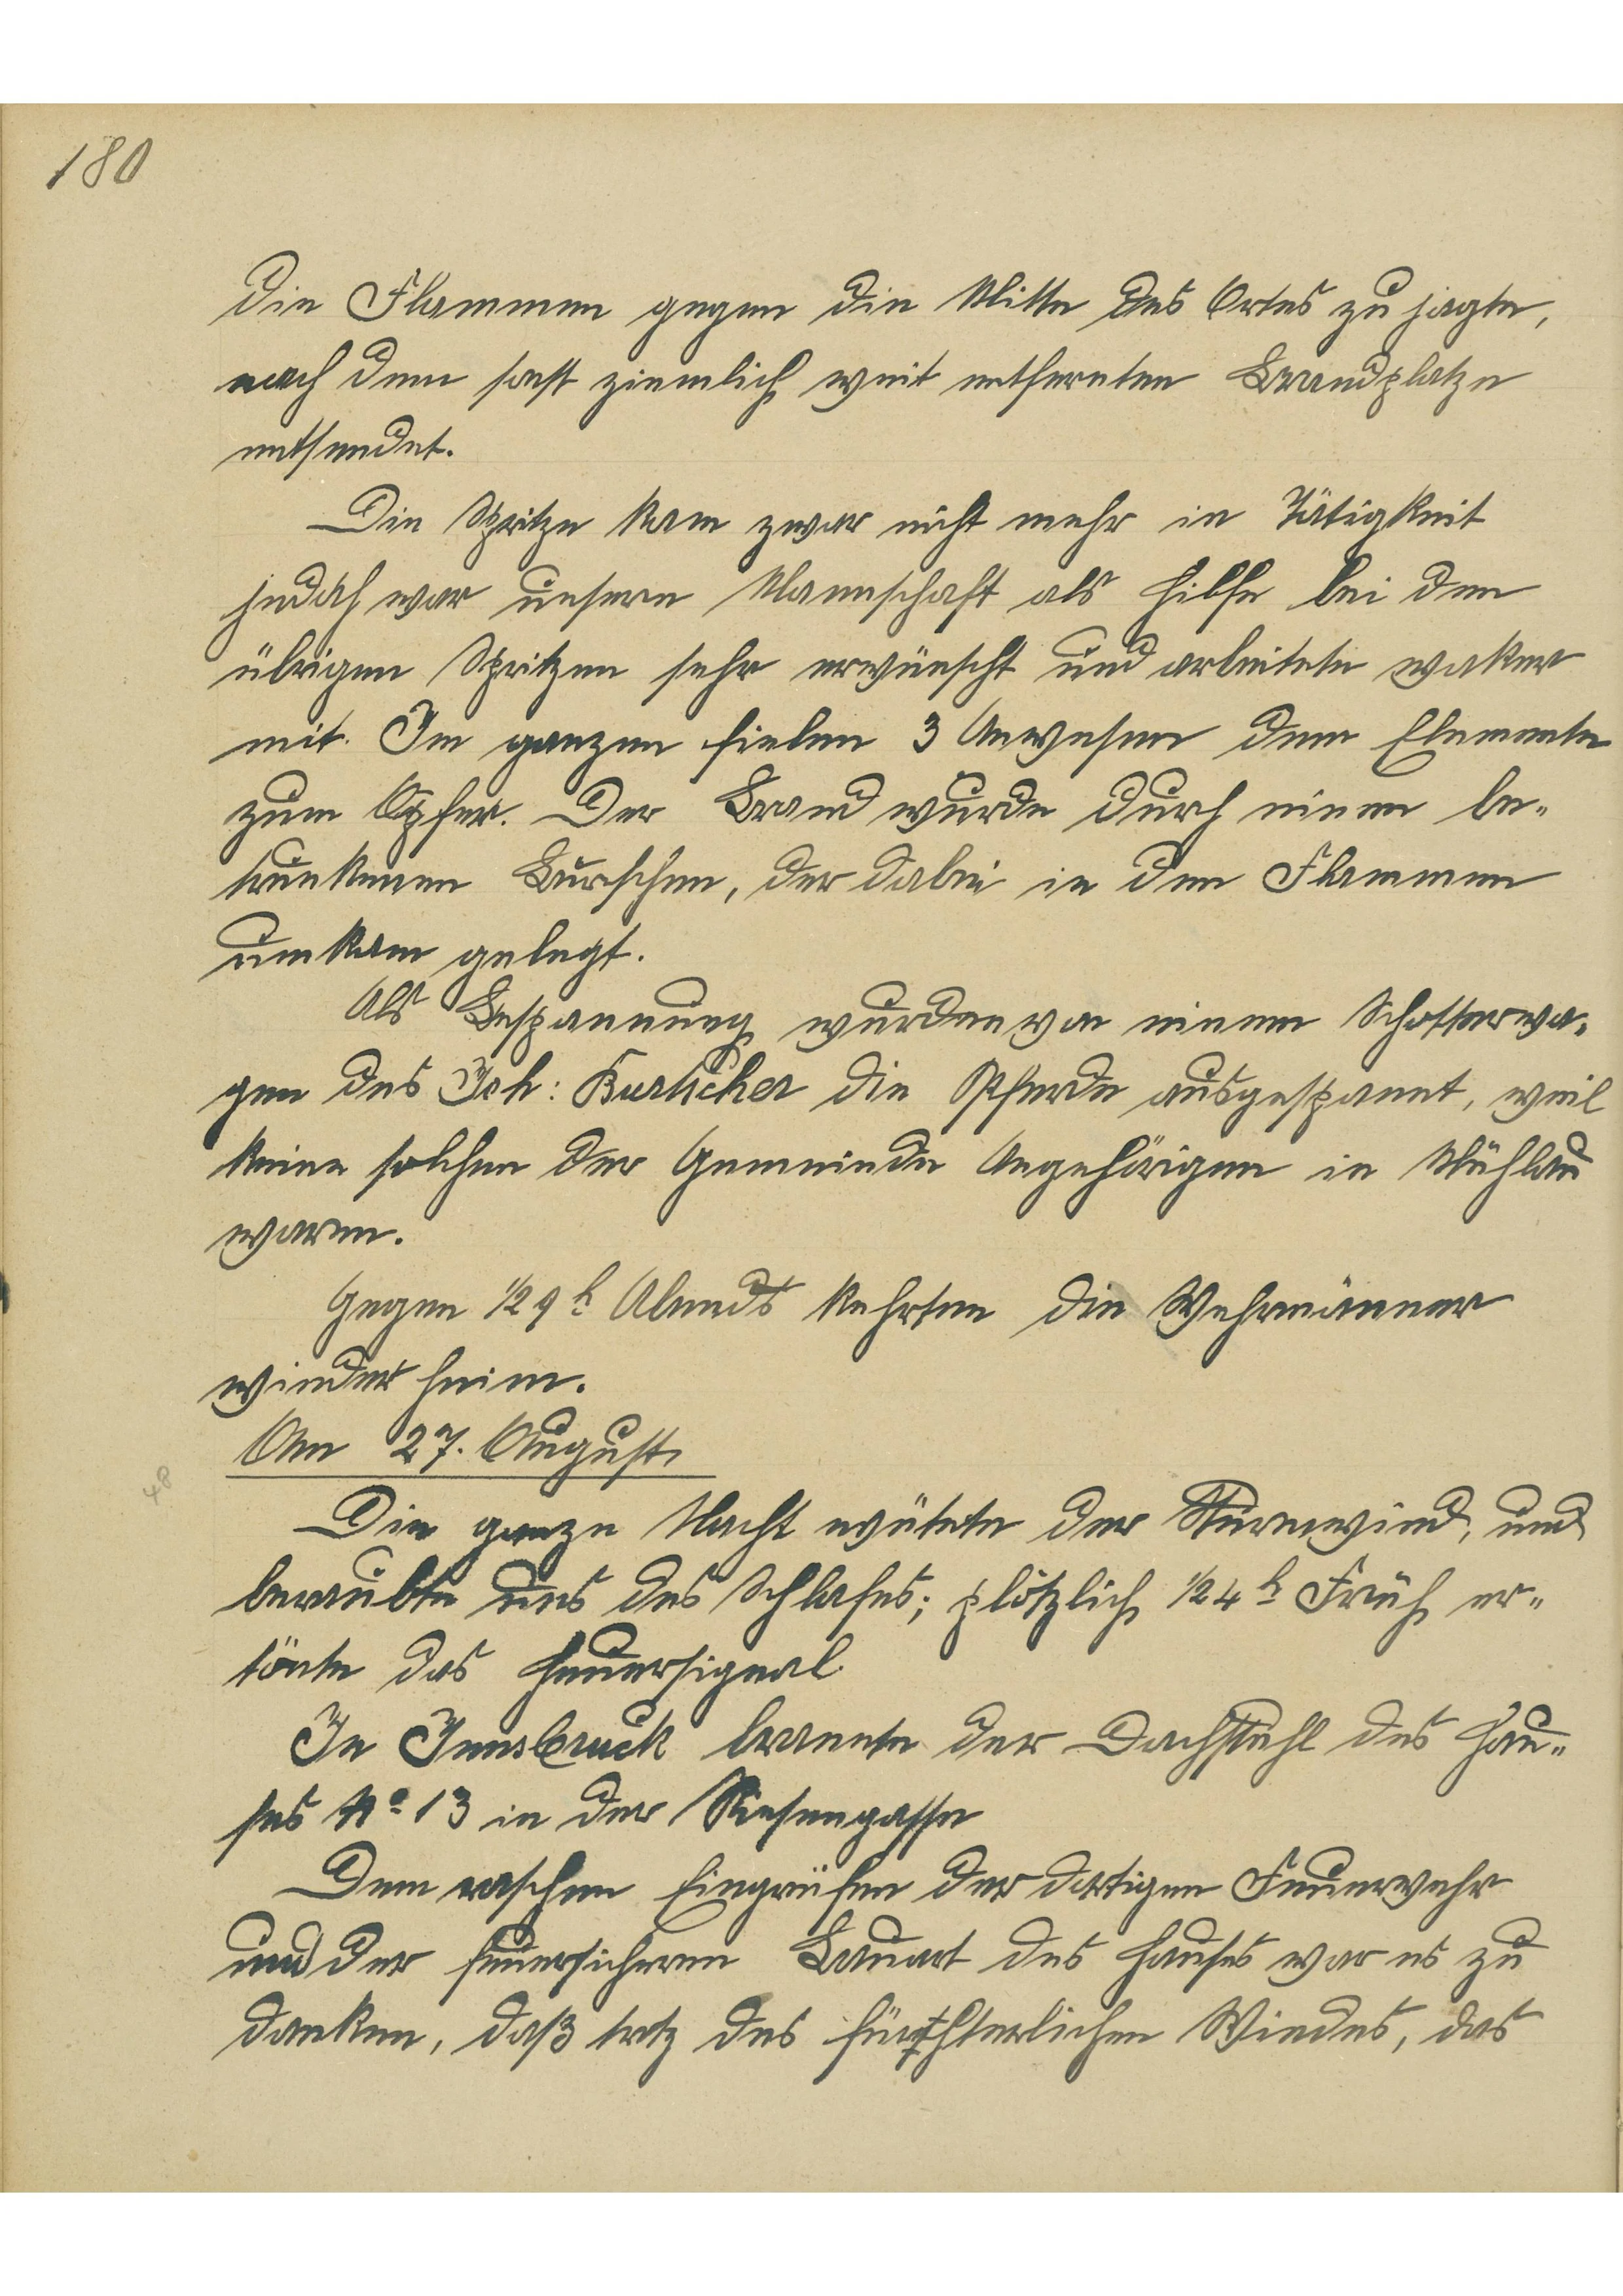 180
die Flammen gegen die Mitte des Ortes zu jagte,
nach dem sonst ziemlich weit entfernten Brandplatze
entsendet.
Die Spritze kam zwar nicht mehr in Tätigkeit
jedoch war unsere Mannschaft als Hilfe bei den
übrigen Spritzen sehr erwünscht und arbeitete waker
mit. Im ganzen fielen 3 Anwesen dem Elemente
zum Opfer. Der Brand wurde durch einen be-
trunkenen Burschen, der dabei in den Flammen
umkam gelegt.
Als Bespannung wurden von einem Schotterwa-
gen des Joh: die Pferde ausgespannt, weil
keine solchen der Gemeinde Angehörigen in Mühlau
waren.
Gegen 1/2 9 h Abends kehrten die Wehrmänner
wieder heim.
Am 27. August.
48
Die ganze Nacht wütete der Sturmwind, und
beraubte uns des Schlafes; plötzlich 1/2 4 h Früh er-
tönte das Feuersignal.
In Innsbruck brannte der Dachstuhl des Hau-
ses No 13 in der Riesengasse
Dem raschen Eingreifen der dortigen Feuerwehr
und der feuersicheren Bauart des Hauses war es zu
danken, daß trotz des fürchterlichen Windes, das